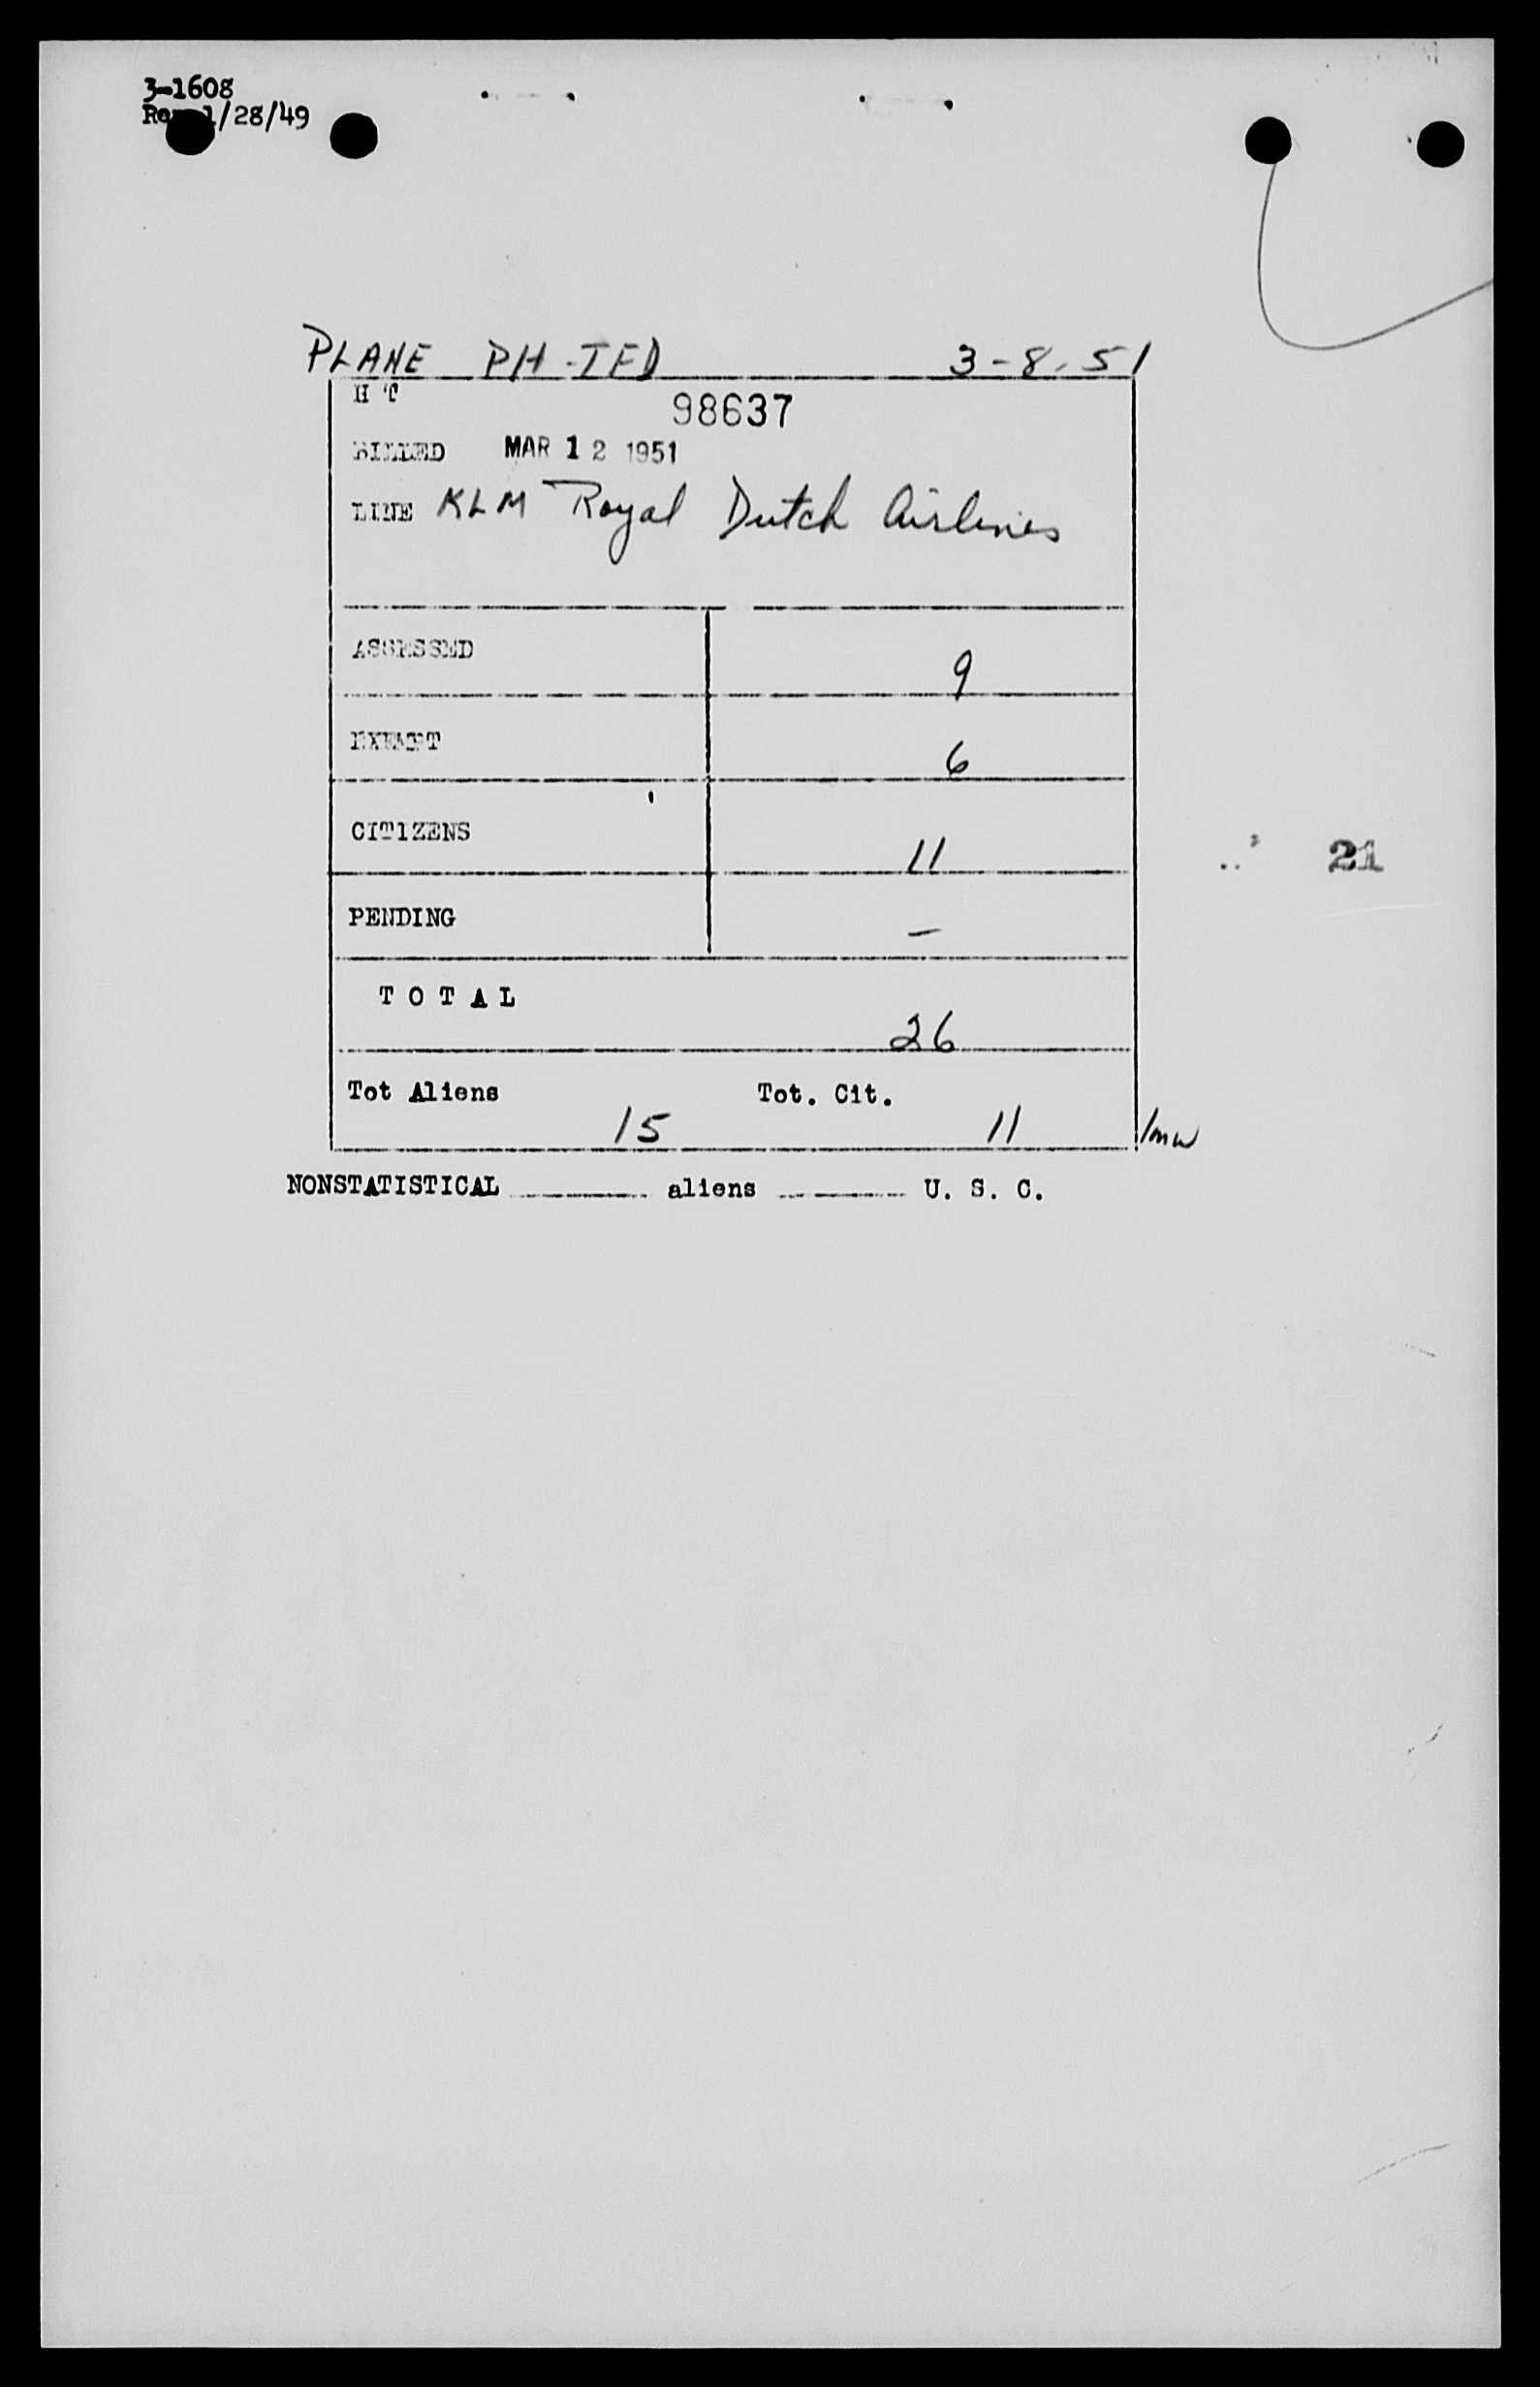 3-1608
1/28/49
PLANE PH-TFD 3-8-51
H T
98637
BILLED MAR 12 1951
LINE KLM Royal Dutch Airlines
ASSESSED 9
EXEMPT 6
CITIZENS 11
21
PENDING -
T O T A L
26
Tot Aliens 15 Tot. Cit. 11
NONSTATISTICAL aliens U. S. C.